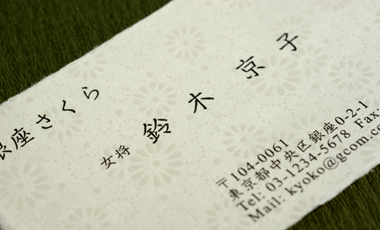 銀座さくら
女将 鈴木 京子
〒104-0061
東京都中央区銀座0-2-1
Tel: 03-1234-5678 Fax:
Mail: kyoko@gcom.co